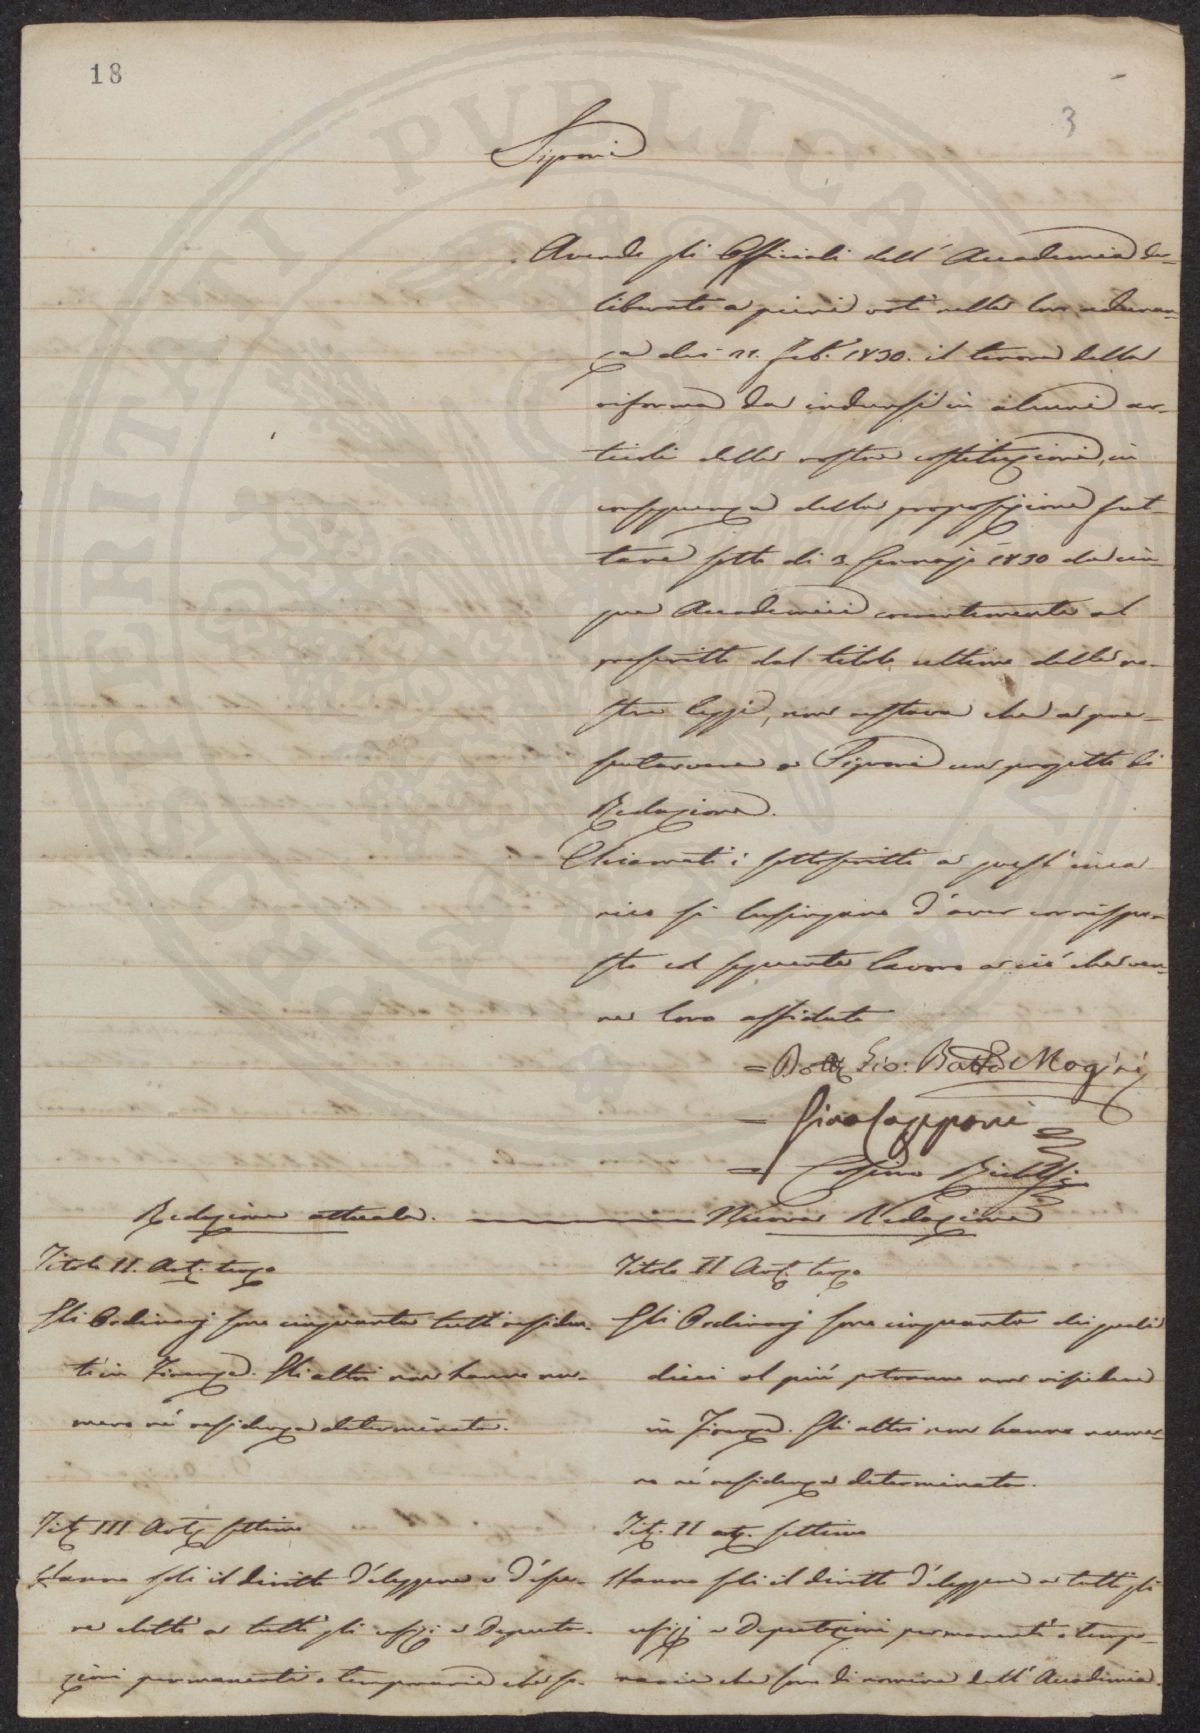 18
3
Signori
Avendo gli Officiali dell' Accademia de-
liberato a pieni voti nella loro adunan-
za dei 21. Feb. 1830. il tenore della
riforma da indursi in alcuni ar-
ticoli delle nostre costituzioni, in
conseguenza della proposizione fat-
tane sotto di 3 Gennajo 1830 da cin-
que Accademici coerentemente al
prescritto dal titolo ultimo delle no-
stre leggi, non restava che a pre-
sentarvene o Signori un progetto di
Redazione.
Chiamati i sottoscritti a quest' inca
rico si lusingano d'aver corrispo-
sto col seguente lavoro a ciò che ven-
ne loro affidato
= Dott Gio: Batta Magini
= Gino Capponi
= Cosimo Ridolfi
Redazione attuale. Nuova Redazione
Titolo II. Art. terzo
Gli Ordinarj sono cinquanta tutti residen-
ti in Firenze. Gli altri non hanno nu-
mero né residenza determinata.
Tit. III Art. settimo
Hanno soli il diritto d'eleggere e d'esse-
re eletti a tutti gli ufizi e Deputa-
zioni permanenti o temporarie che so-
Titolo II Art. terzo
Gli Ordinarj sono cinquanta dei quali
dieci al più potranno non risiedere
in Firenze. Gli altri non hanno nume-
ro né residenza determinata.
Tit. II art. settimo
Hanno soli il diritto d'eleggere a tutti gli
ufizj e Deputazioni permanenti o tempo-
rarie che sono di nomina dell' Accademia.